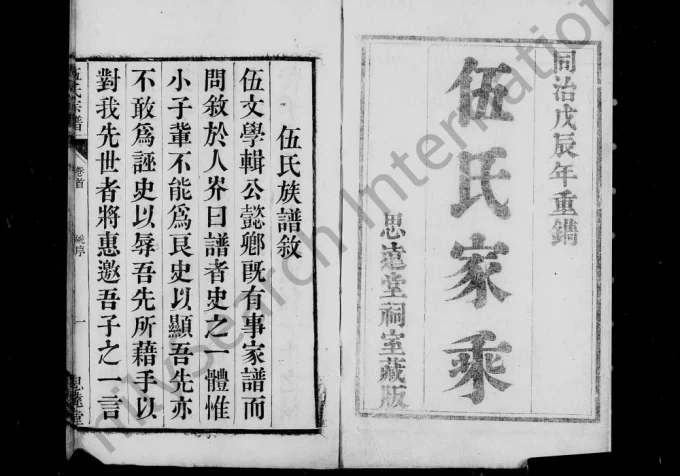 同治戊辰年重鐫
伍氏家乘
思遠堂祠室藏版
伍氏族譜敘
伍文學輯公懿鄉既有事家譜而
問敘於人岕曰譜者史之一體惟
小子輩不能為良史以顯吾先亦
不敢為誣史以辱吾先所藉手以
對我先世者將惠邀吾子之一言
伍氏宗譜
卷首
序
一
思遠堂
FamilySearch International